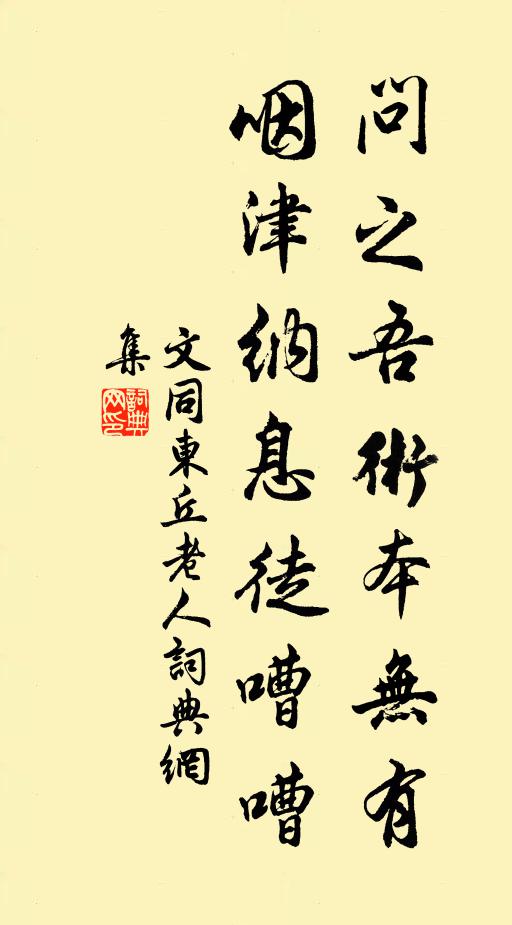 問之吾術本無有
咽津納息徒嘈嘈
文同東丘老人詞典網
集
詞典
网印